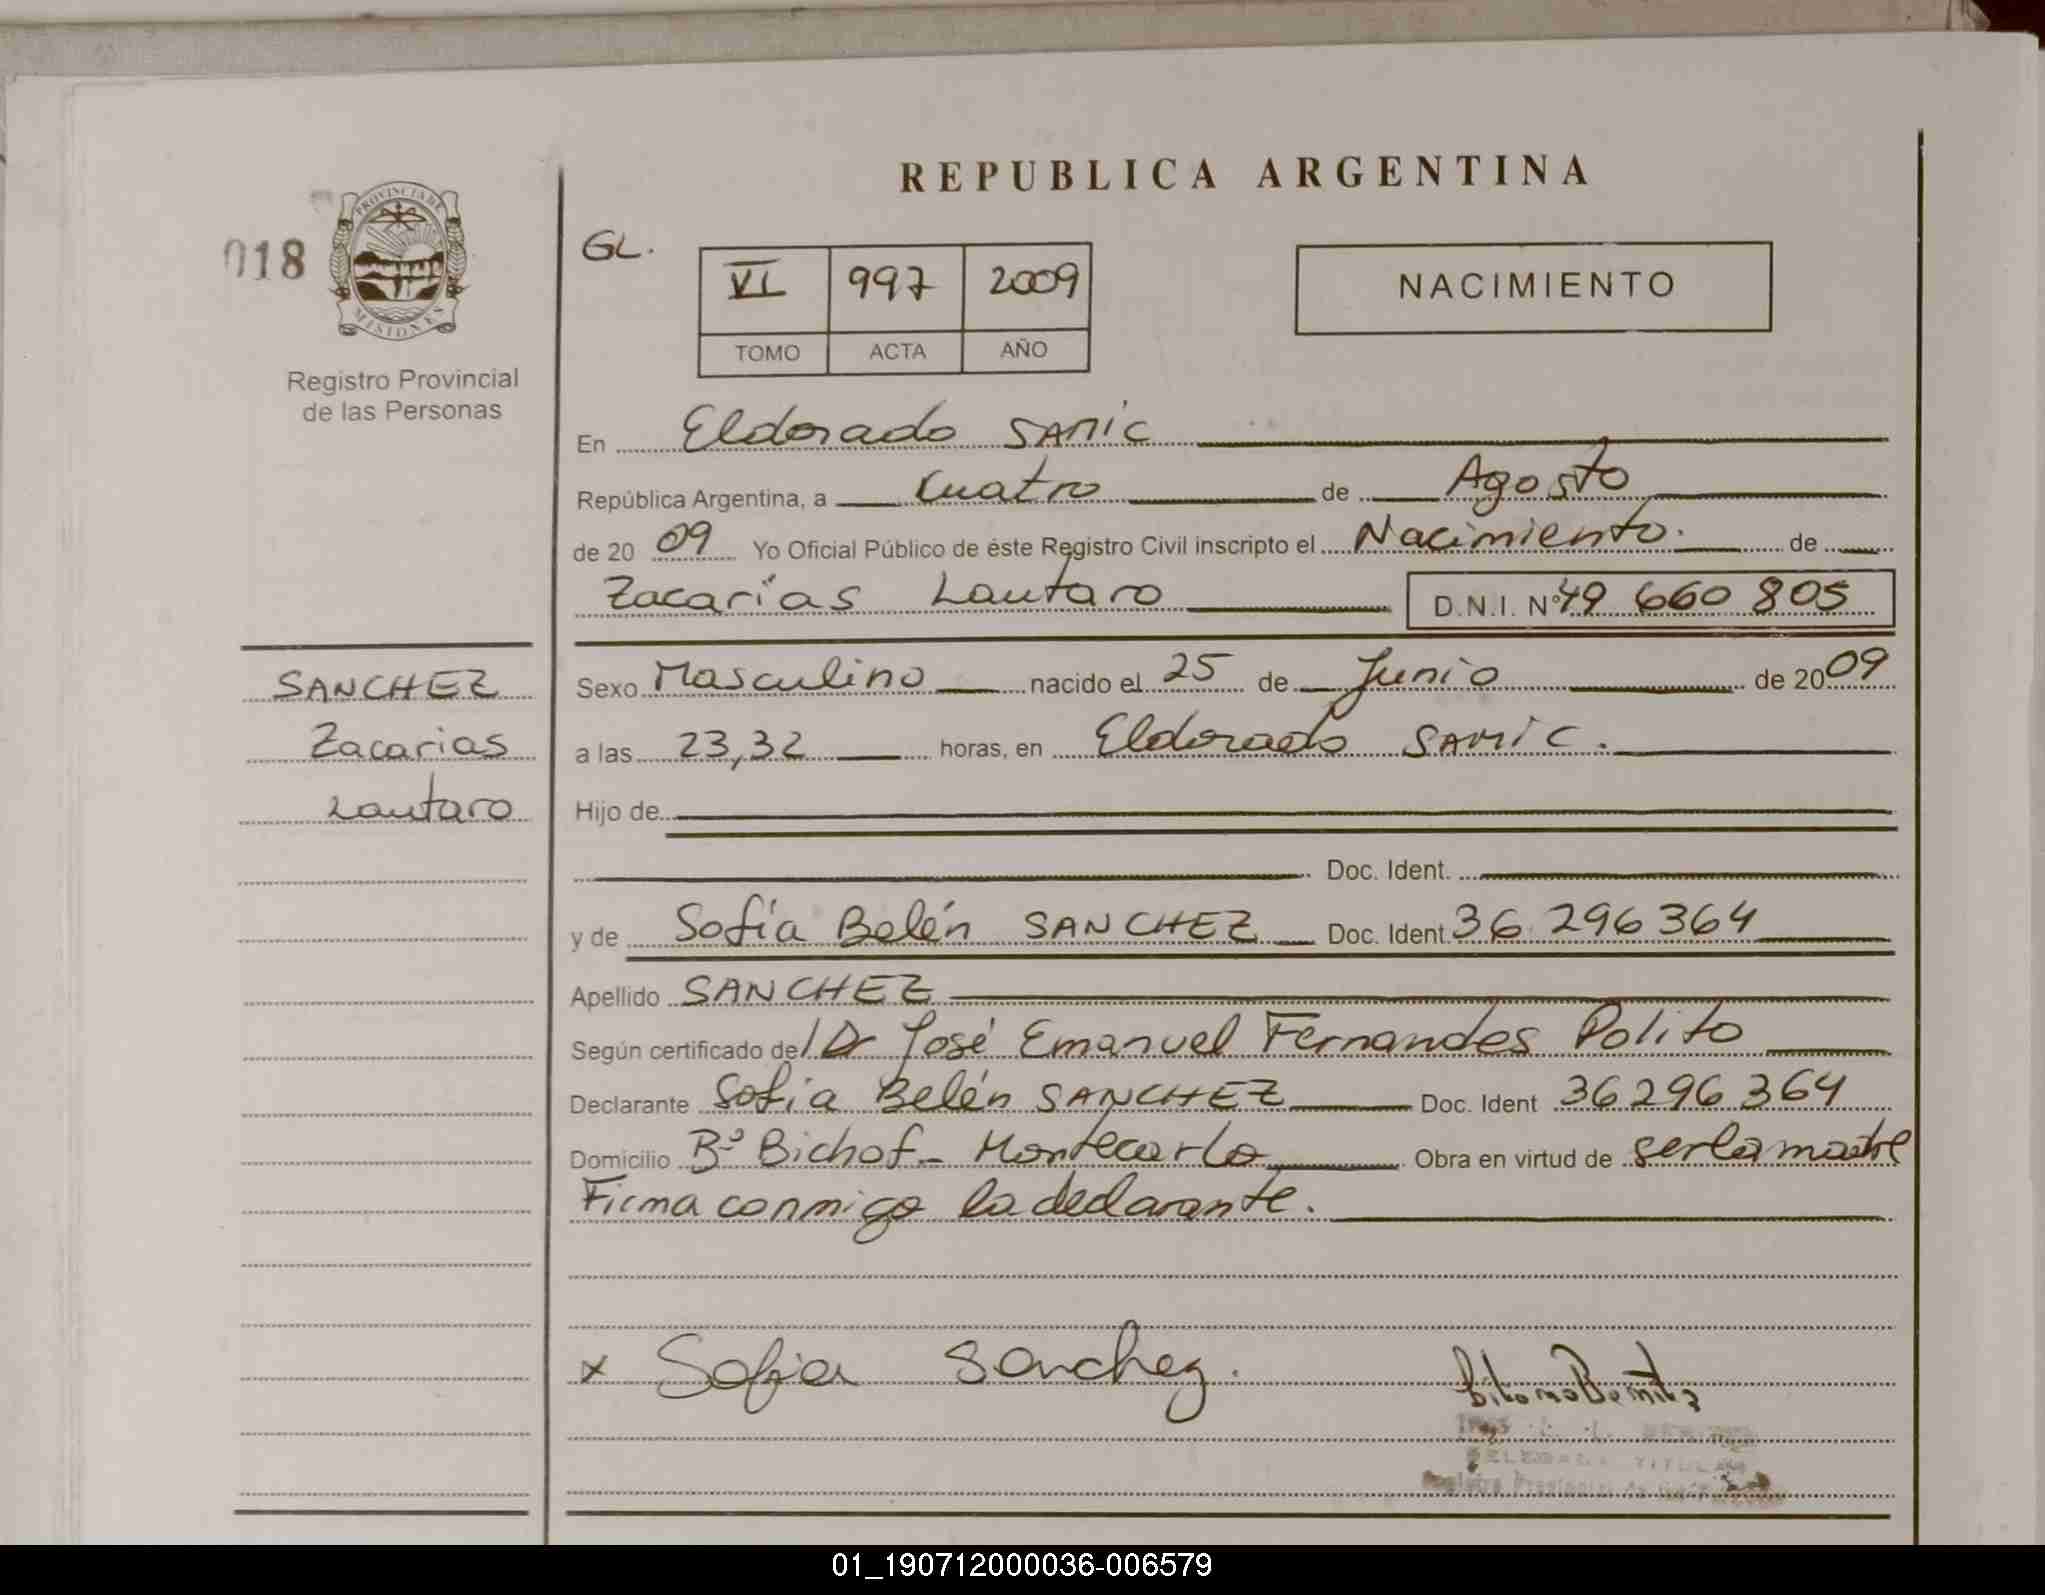 REPUBLICA ARGENTINA
018
PROVINCIA DE
MISIONES
Registro Provincial
de las Personas
GL.
VI 997 2009
TOMO ACTA AÑO
NACIMIENTO
En Eldorado SAMIC
República Argentina, a Cuatro de Agosto
de 20 09 Yo Oficial Público de éste Registro Civil inscripto el Nacimiento. de
Zacarías Lautaro D.N.I. Nº 49 660 805
SANCHEZ
Zacarias
Lautaro
Sexo Masculino nacido el 25 de Junio de 2009
a las 23,32 horas, en Eldorado SAMIC.
Hijo de
Doc. Ident.
y de Sofía Belén SANCHEZ Doc. Ident. 36 296 364
Apellido SANCHEZ
Según certificado del Dr José Emanuel Fernandes Polito
Declarante Sofia Belén SANCHEZ Doc. Ident 36 296 364
Domicilio Bº Bichof - Montecarlo Obra en virtud de ser la madre
Firma conmigo la declarante.
x Sofia Sanchez.
TITULAR
01_190712000036-006579